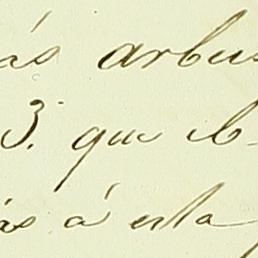 ás arbus
3. que lb-
ás á esta